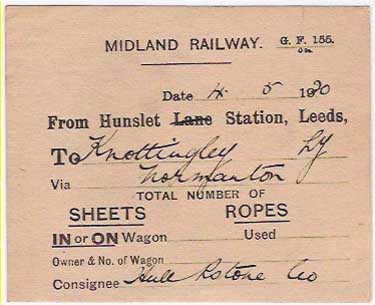 MIDLAND RAILWAY. G. F. 155.
Date 4 5 1920
From Hunslet Lane Station, Leeds,
To Knottingley LY
Via Normanton
TOTAL NUMBER OF
SHEETS ROPES
IN or ON Wagon Used
Owner & No. of Wagon
Consignee Hull Co